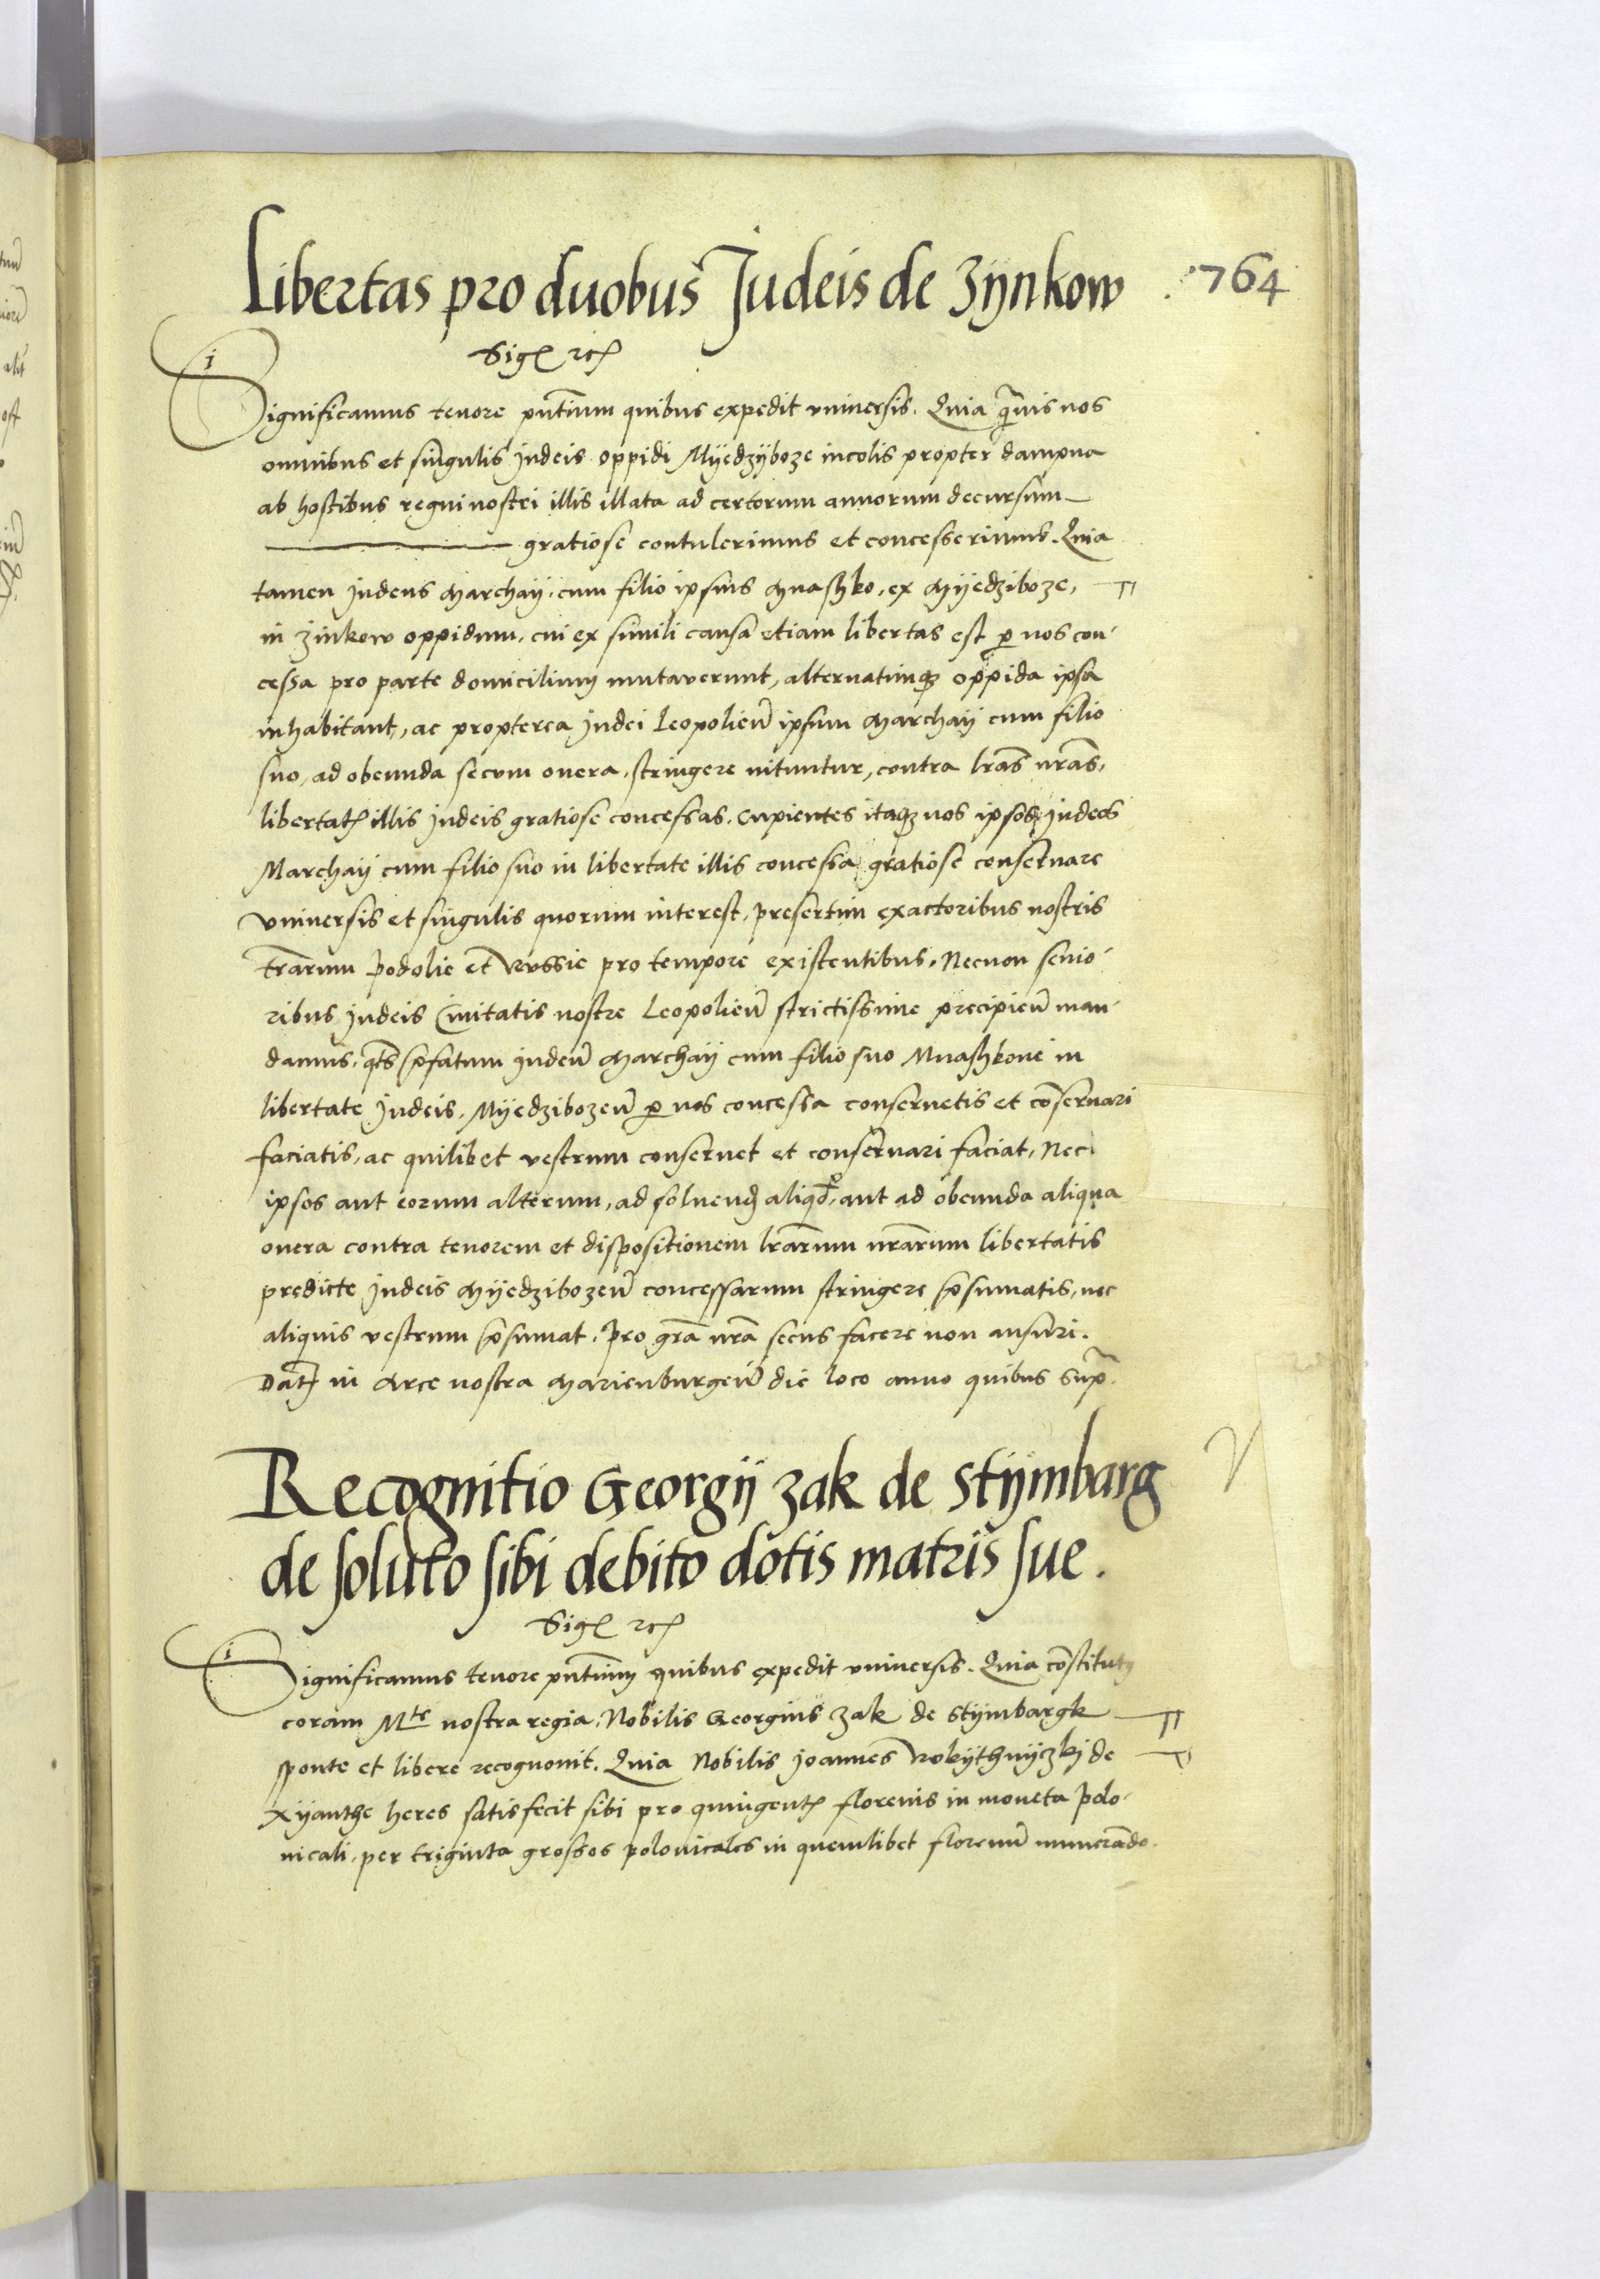 Libertas pro duobus Judeis de Zÿnkow
764
Sigꝭ ꝛcꝭ
Significamus tenore pntium quibus expedit vniversis. Quia quis nos
omnibus et singulis Judeis oppidi Mÿedzÿboze incolis propter dampna
ab hostibus regni nostri illis illata ad certorum annorum decursum
gratiose contulerimus et concesserimus. Quia
tamen Judeus Marchaÿ, cum filio ipsius Mnashko, ex Mÿedziboze,
in Zinkow oppidum, cui ex simili causa etiam libertas est ꝑ nos con-
cessa pro parte domicilium mutaverunt, alternatimqꝫ oppida ipsa
inhabitant, ac propterea Judei Leopolien̄ ipsum Marchaÿ cum filio
suo, ad obeunda secum onera, stringere nituntur, contra lras nras,
libertatꝭ illis Judeis gratiose concessas. Cupientes itaqꝫ nos ipsos Judeos
Marchaÿ cum filio suo in libertate illis concessa gratiose conservare
vniversis et singulis quorum interest, presertim exactoribus nostris
trarum Podolie et Russie pro tempore existentibus, Necnon senio-
ribus Judeis Civitatis nostre Leopolien̄ strictissime precipien̄ man-
damus, qts pfatum Judeū Marchaÿ cum filio suo Mnashkone in
libertate Judeis, Mÿedzibozen̄ ꝑ nos concessa conservetis et cōservari
faciatis, ac quilibet vestrum conservet et conservari faciat, Nec
ipsos aut eorum alterum, ad solvend aliqd, aut ad obeunda aliqua
onera contra tenorem et dispositionem lrarum nrarum libertatis
predicte Judeis Mÿedzibozen̄ concessarum stringere psumatis, nec
aliquis vestrum psumat, pro gra nra secus facere non ausuri.
Datꝭ in Arce nostra Marienburgen̄ die loco anno quibus supra.
Recognitio Georgÿ Zak de Stÿmbarg
de soluto sibi debito dotis matris sue.
Sigꝭ ꝛcꝭ
Significamus tenore pntium quibus expedit vniversis. Quia cōstitutꝰ
coram Mte nostra regia, Nobilis Georgius Zak de Stÿmbargk
sponte et libere recognovit. Quia Nobilis Joannes Rokÿthnÿczkj de
Xÿanthe heres satisfecit sibi pro quingentꝭ florenis in moneta polo-
nicali, per triginta grossos polonicales in quemlibet florenū numerādo.